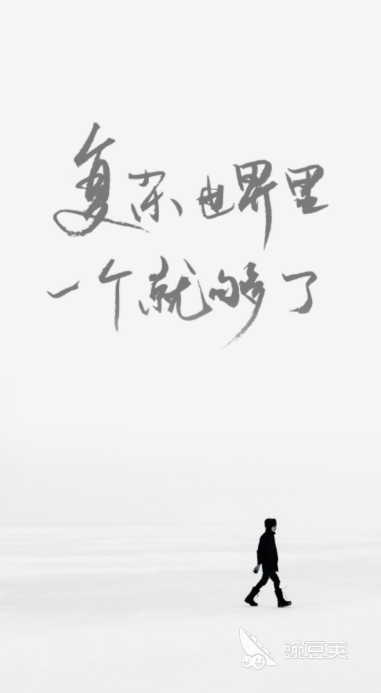 复杂世界里
一个就够了
豌豆荚